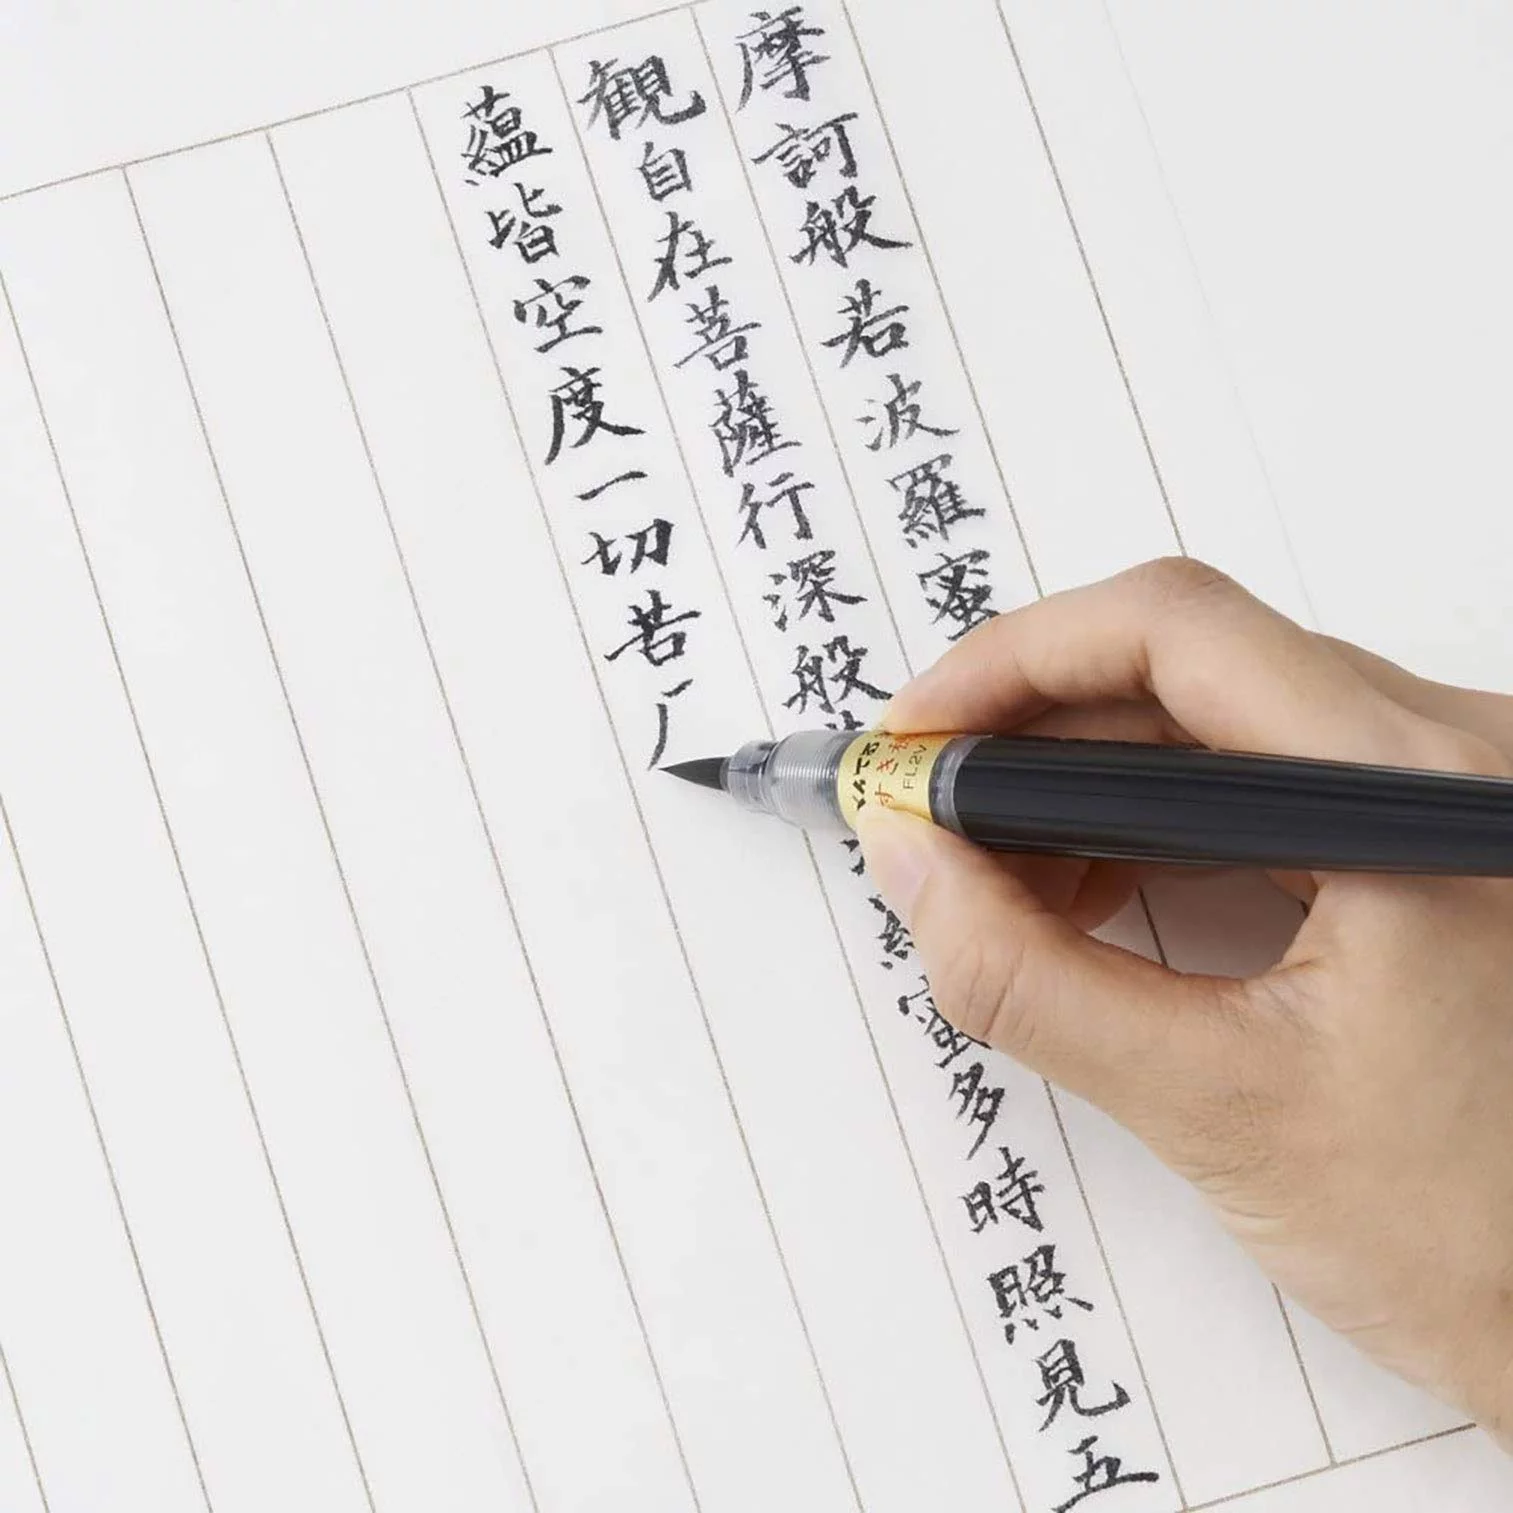 摩訶般若波羅蜜
観自在菩薩行深般蜜多時照見五
蘊皆空度一切苦
FL2V